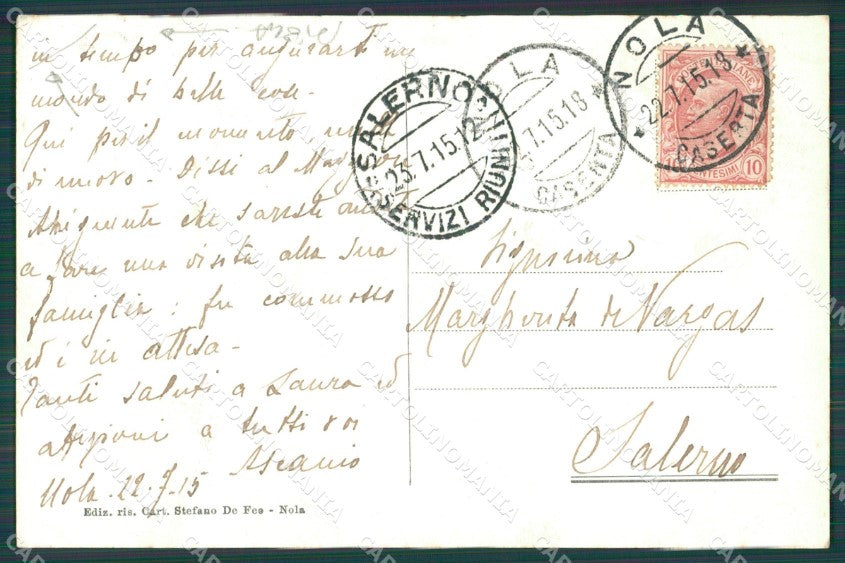 in tempo per augurarti un
mondo di belle cose.
Qui per il momento nulla
di nuovo. Dissi al Maggiore
che sareste andati
a fare una visita alla sua
famiglia: fu commosso
ed è in attesa.
Tanti saluti a Laura ed
affezioni a tutti voi
Ascanio
Nola. 22-7-15
Ediz. ris. Cart. Stefano De Feo - Nola
SALERNO
23.7.15.12
SERVIZI RIUNITI
NOLA
7.15.18
CASERTA
NOLA
22.7.15.18
CASERTA
10
Signorina
Margherita de Vargas
Salerno
CARTOLINOMANIA